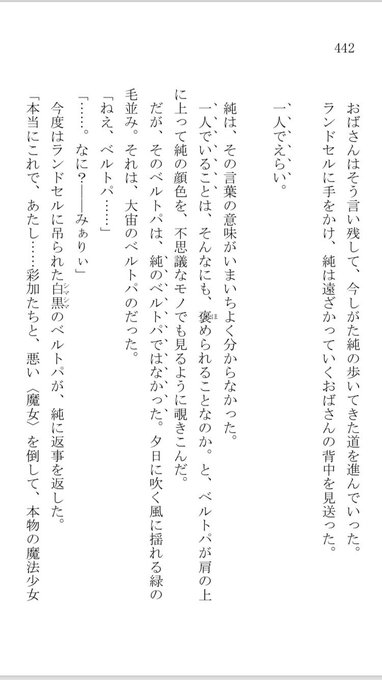 442
おばさんはそう言い残して、今しがた純の歩いてきた道を進んでいった。
ランドセルに手をかけ、純は遠ざかっていくおばさんの背中を見送った。
一人でえらい。
純は、その言葉の意味がいまいちよく分からなかった。
一人でいることは、そんなにも、褒められることなのか。と、ベルトパが肩の上
に上って純の顔色を、不思議なモノでも見るように覗きこんだ。
だが、そのベルトパは、純のベルトパではなかった。夕日に吹く風に揺れる緑の
毛並み。それは、大宙のベルトパのだった。
「ねえ、ベルトパ……」
「……。なに？――みぁりぃ」
今度はランドセルに吊られた白黒のベルトパが、純に返事を返した。
「本当にこれで、あたし……彩加たちと、悪い〈魔女〉を倒して、本物の魔法少女